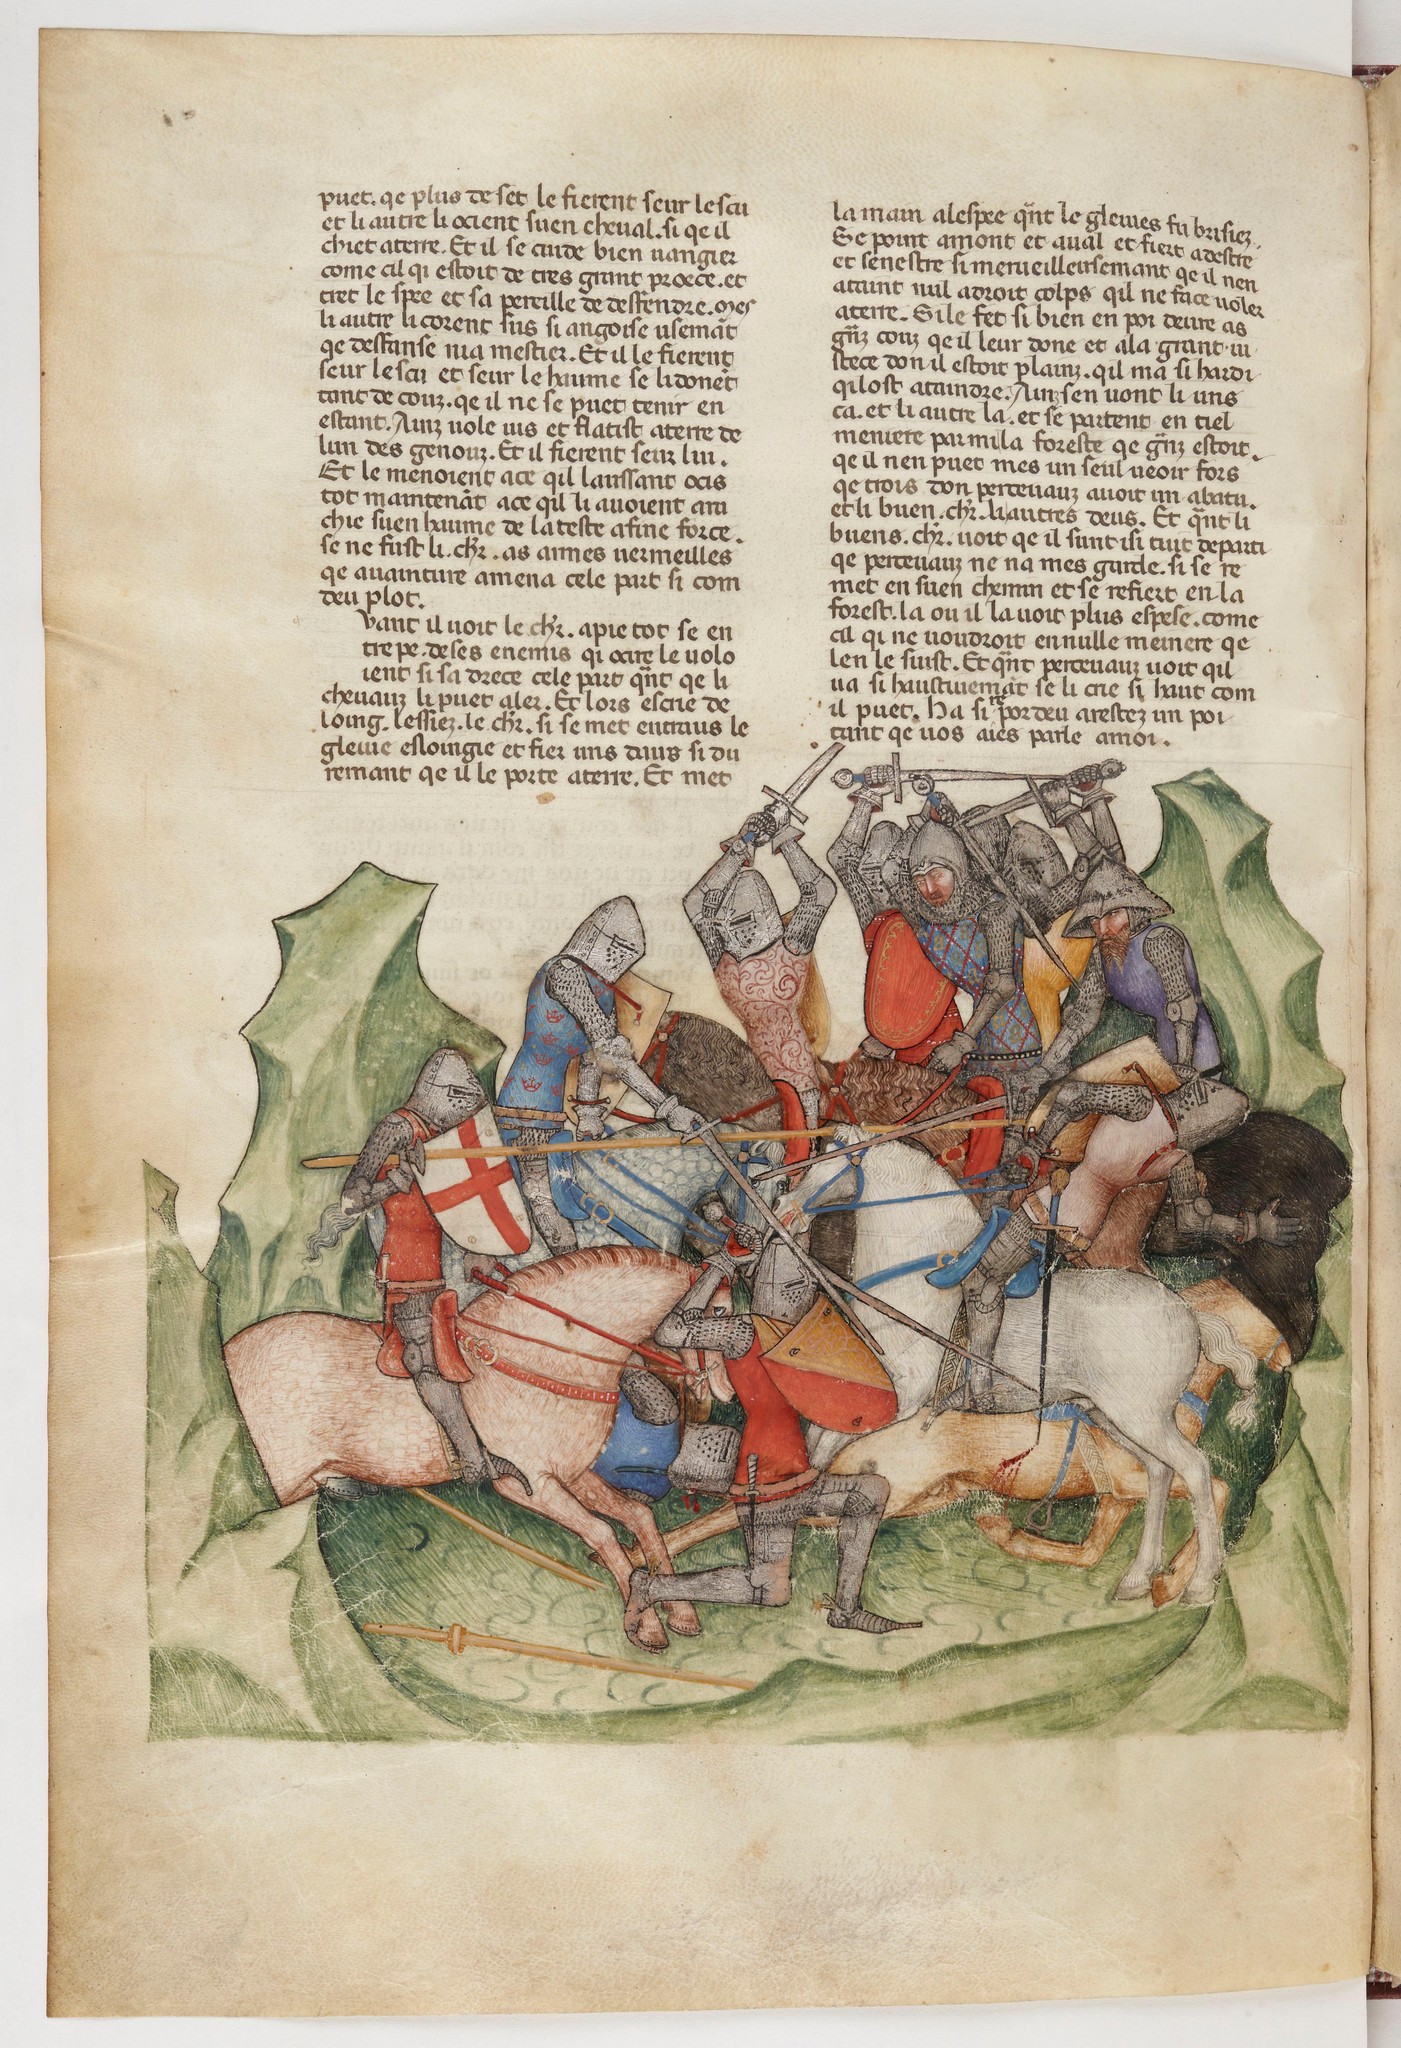 puet. qe plus de set le fierent seur lescu
et li autre li ocient suen cheual. si qe il
chiet aterre. Et il se cuide bien uangier
come cil qi estoit de tres grant proece. et
tret le spee et sa pereille de deffendre. Mes
li autre li corent sus si angoise usemāt
qe deffanse nia mestier. Et il le fierent
seur lescu et seur le haume se li donēt
tant de couz. qe il ne se puet tenir en
estant. Ainz uole uis et flatist aterre de
lun des genouz. Et il fierent seur lui.
Et le menoient ace qil laussant ocis
tot maintenāt ace qil li auoient ara
chie suen haume de la teste afine force.
se ne fust li. chr̄. as armes uermeilles
qe auainture amena cele part si com
deu plot.
Vant il uoit le chr̄. apie tot se en
tre pe. deses enemis qi ocire le uolo
ient si sa drece cele part qn̄t qe li
cheuauz li puet aler. Et lors escrie de
loing. lessiez. le chr̄. si se met entraus le
gleuie esloingie et fier uns daus si du
remant qe il le porte aterre. Et met
la main alespee qn̄t le gleiues fu brisiez.
Se point amont et aual et fiert adestre
et senestre si merueilleusemant qe il nen
ataint nul adroit colps qil ne face uoler
aterre. Si le fet si bien en poi deure as
gn̄z couz qe il leur done et ala grant ui
stece don il estoit plainz. qil ma si hardi
qi lost ataindre. Ainz sen uont li uns
ca. et li autre la. et se partent en tiel
meniere parmi la foreste qe gn̄z estoit.
qe il nen puet mes un seul ueoir fors
qe trois don perceuauz auoit un abatu.
et li buen. chr̄. li autres deus. Et qn̄t li
buens. chr̄. uoit qe il sunt isi tuit departi
qe perceuauz ne na mes garde. si se re
met en suen chemin et se refiert en la
forest. la ou il la uoit plus espese. come
cil qi ne uoudroit en nulle meinere qe
len le suist. Et qn̄t perceuauz uoit qil
ua si haustiuemāt se li crie si haut com
il puet. Ha sire por deu arestez un poi
tant qe uos aies parle amoi.